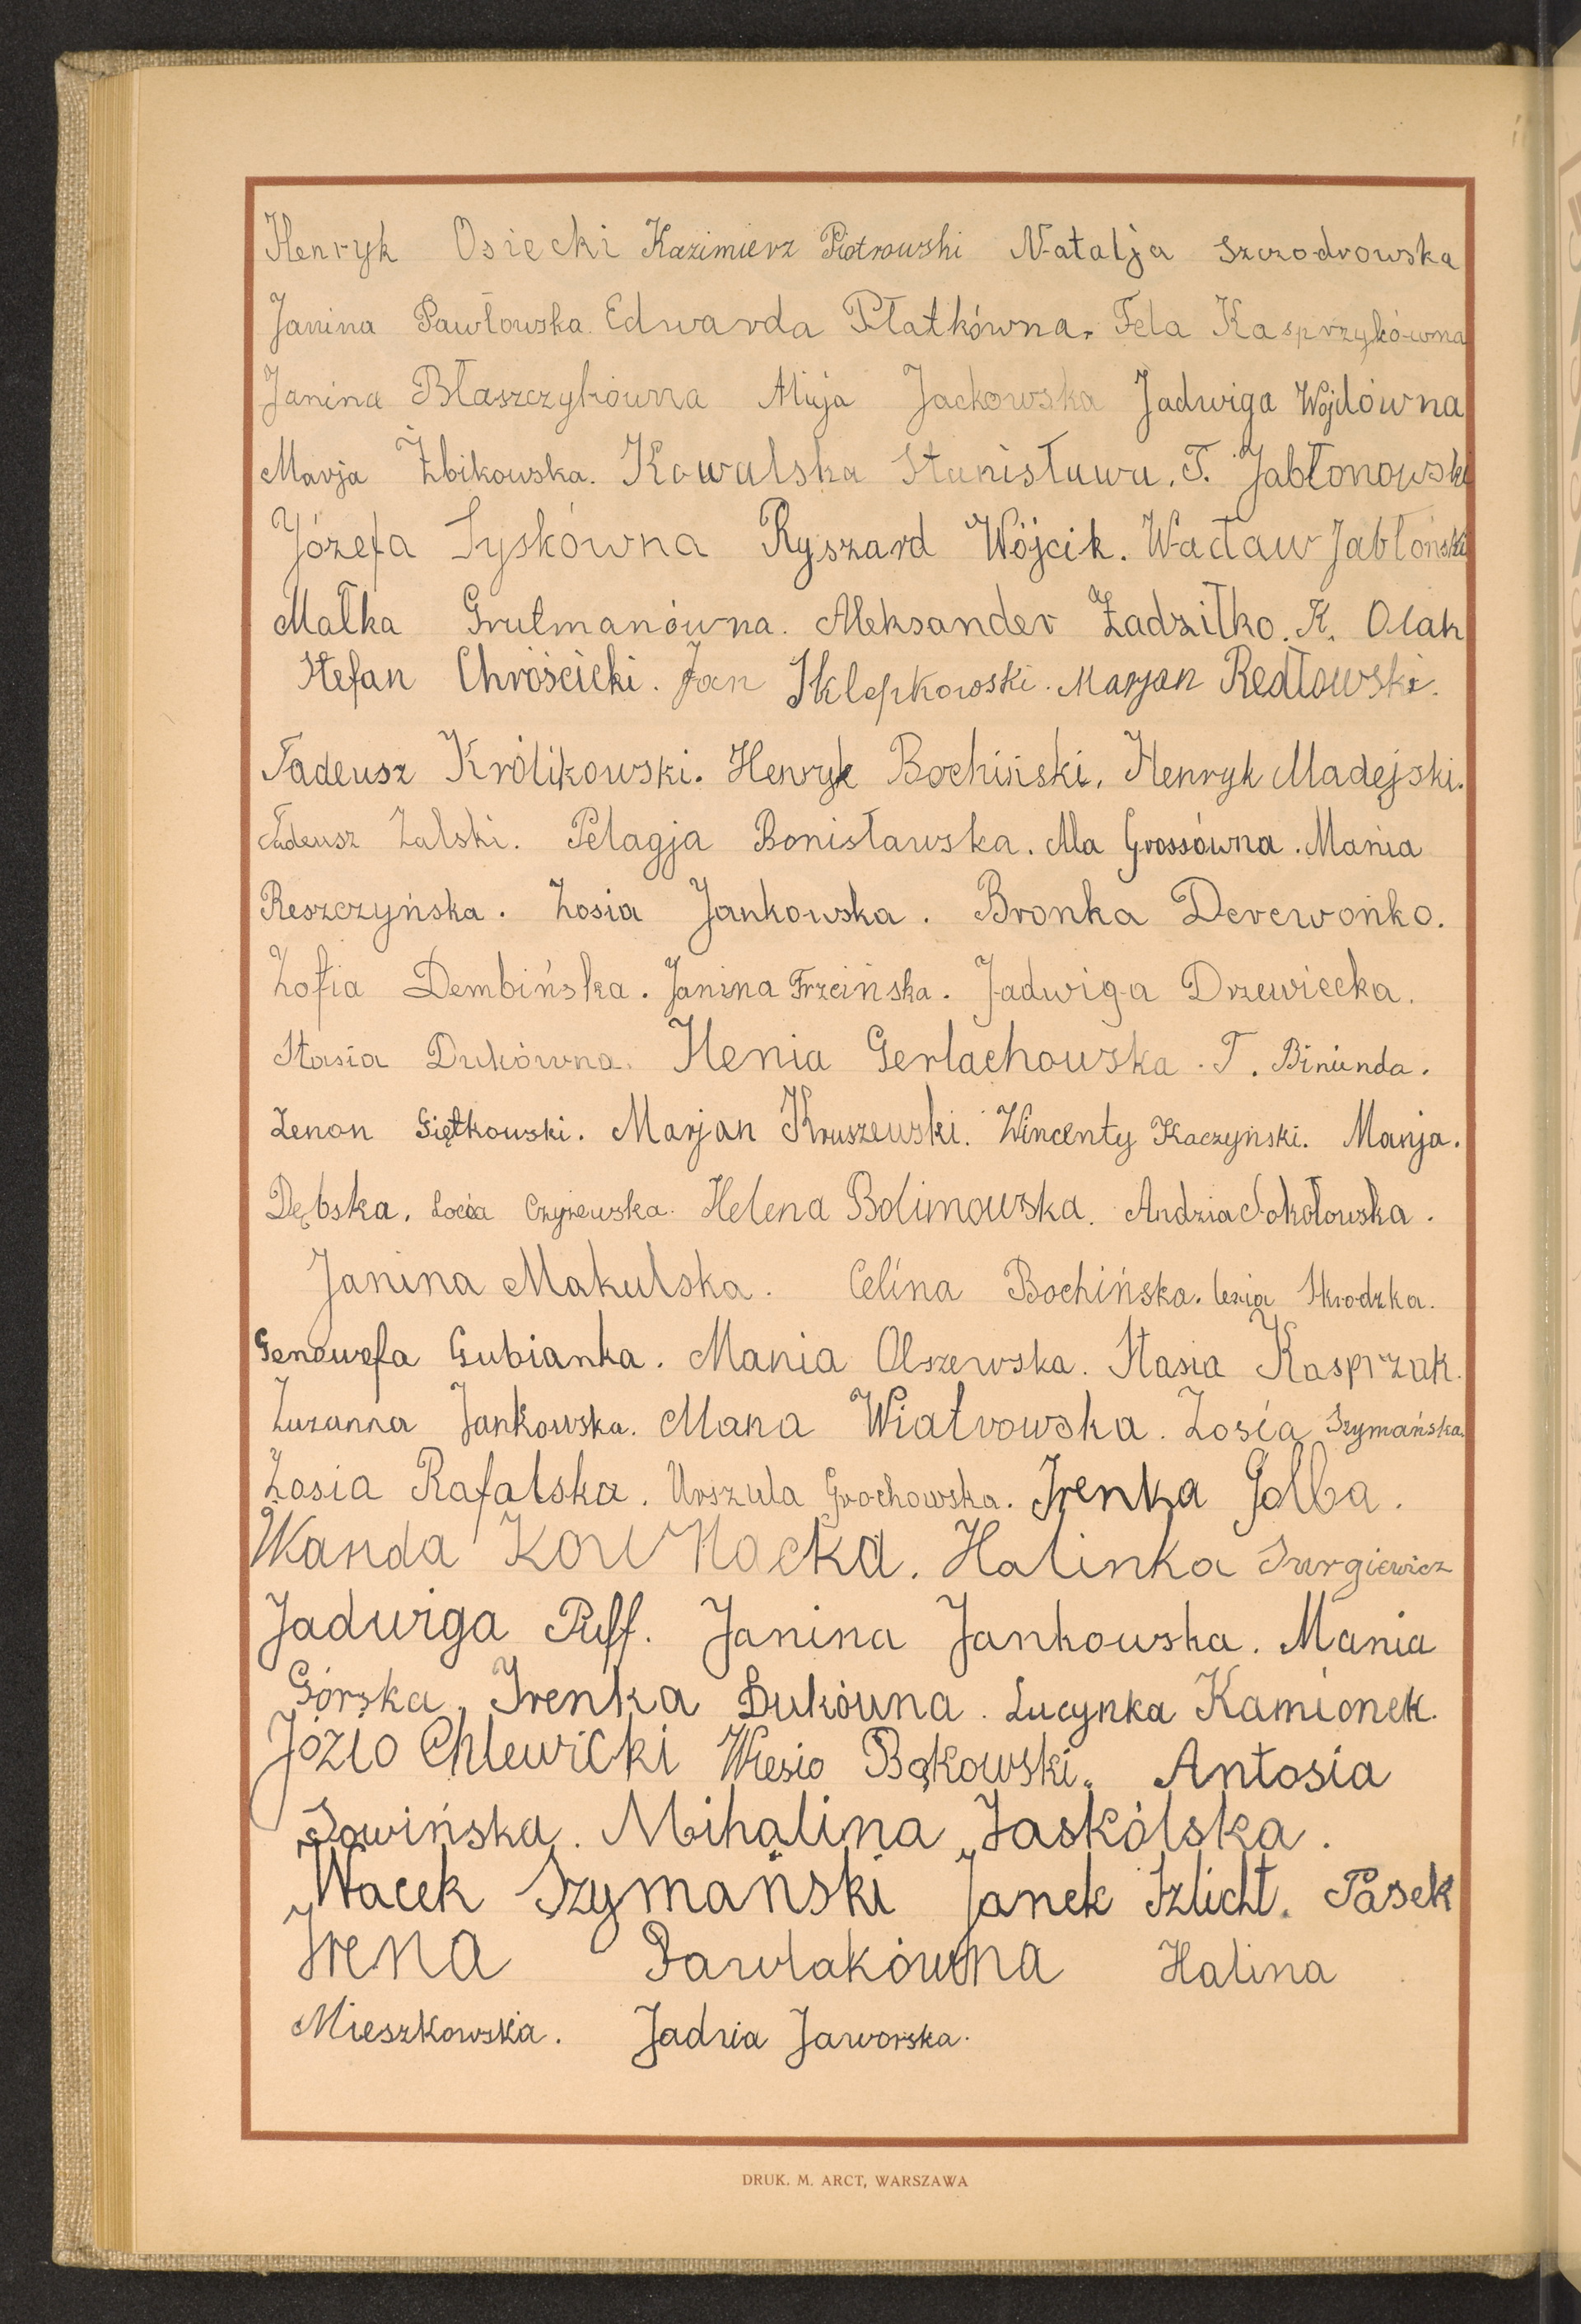 Henryk Osiecki Kazimierz Piotrowski Natalja Szczodrowska
Janina Pawłowska. Edwarda Płatkówna. Fela Kasprzykówna
Janina Błaszczykówna Alicja Jackowska Jadwiga Wojdówna
Marja Żbikowska. Kowalska Stanisława. T. Jabłonowski
Józefa Łyskówna Ryszard Wójcik. Wacław Jabłoński
Małka Grutmanówna. Aleksander Żadziłko. K. Olak
Stefan Chróścicki. Jan Sklepkowski. Marjan Redłowski.
Tadeusz Królikowski. Henryk Bochiński. Henryk Madejski.
Tadeusz Zalski. Pelagja Bonisławska. Ala Grossówna. Mania
Reszczyńska. Zosia Jankowska. Bronka Derewońko.
Zofia Dembińska. Janina Trzcińska. Jadwiga Drzewiecka.
Stasia Dukówna. Henia Gerlachowska. T. Binienda.
Zenon Giętkowski. Marjan Kruszewski. Wincenty Kaczyński. Marja.
Dębska. Lodzia Czyżewska. Helena Bolimowska. Andzia Sokołowska.
Janina Makulska. Celina Bochińska. Cesia Skrodzka.
Genowefa Gubianka. Mania Olszewska. Stasia Kasprzak.
Zuzanna Jankowska. Mana Wiatrowska. Zosia Szymańska.
Zosia Rafalska. Urszula Grochowska. Irenka Golba.
Wanda Kownacka. Halinka Surgiewicz
Jadwiga Puff. Janina Jankowska. Mania
Górska. Irenka Dukówna. Lucynka Kamionek.
Józio Chlewicki Wiesio Bąkowski. Antosia
Sowińska. Mihalina Jaskólska.
Wacek Szymański Janek Szlicht. Pasek
Irena Pawlakówna Halina
Mieszkowska. Jadzia Jaworska.
DRUK. M. ARCT, WARSZAWA